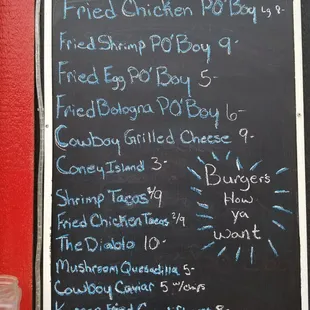 Fried Chicken PO'Boy Lg 8-
Fried Shrimp PO'Boy 9-
Fried Egg PO'Boy 5-
Fried Bologna PO'Boy 6-
Cowboy Grilled Cheese 9-
Coney Island 3-
Shrimp Tacos 3/9
Fried Chicken Tacos 3/9
The Diablo 10-
Mushroom Quesadilla 5-
Cowboy Caviar 5 w/chips
Fried
Burgers
How
ya
want